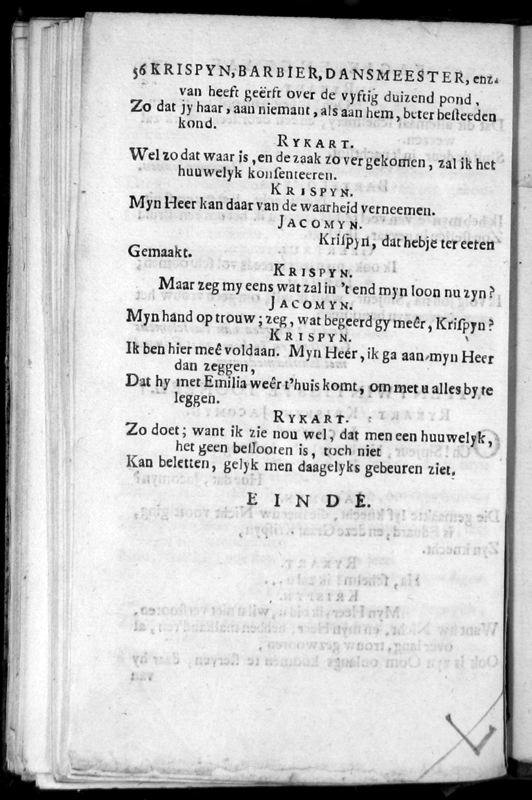 56 KRISPYN, BARBIER, DANSMEESTER, enz.
van heeft geërft over de vyftig duizend pond,
Zo dat jy haar, aan niemant, als aan hem, beter besteeden
kond.
RYKART.
Wel zo dat waar is, en de zaak zo ver gekomen, zal ik het
huuwelyk konsenteeren.
KRISPYN.
Myn Heer kan daar van de waarheid verneemen.
JACOMYN.
Krispyn, dat hebje ter eeren
Gemaakt.
KRISPYN.
Maar zeg my eens wat zal in 't end myn loon nu zyn?
JACOMYN.
Myn hand op trouw; zeg, wat begeerd gy meêr, Krispyn?
KRISPYN.
Ik ben hier meê voldaan. Myn Heer, ik ga aan myn Heer
dan zeggen,
Dat hy met Emilia weêr t'huis komt, om met u alles by te
leggen.
RYKART.
Zo doet; want ik zie nou wel, dat men een huuwelyk,
het geen beslooten is, toch niet
Kan beletten, gelyk men daagelyks gebeuren ziet.
EINDE.